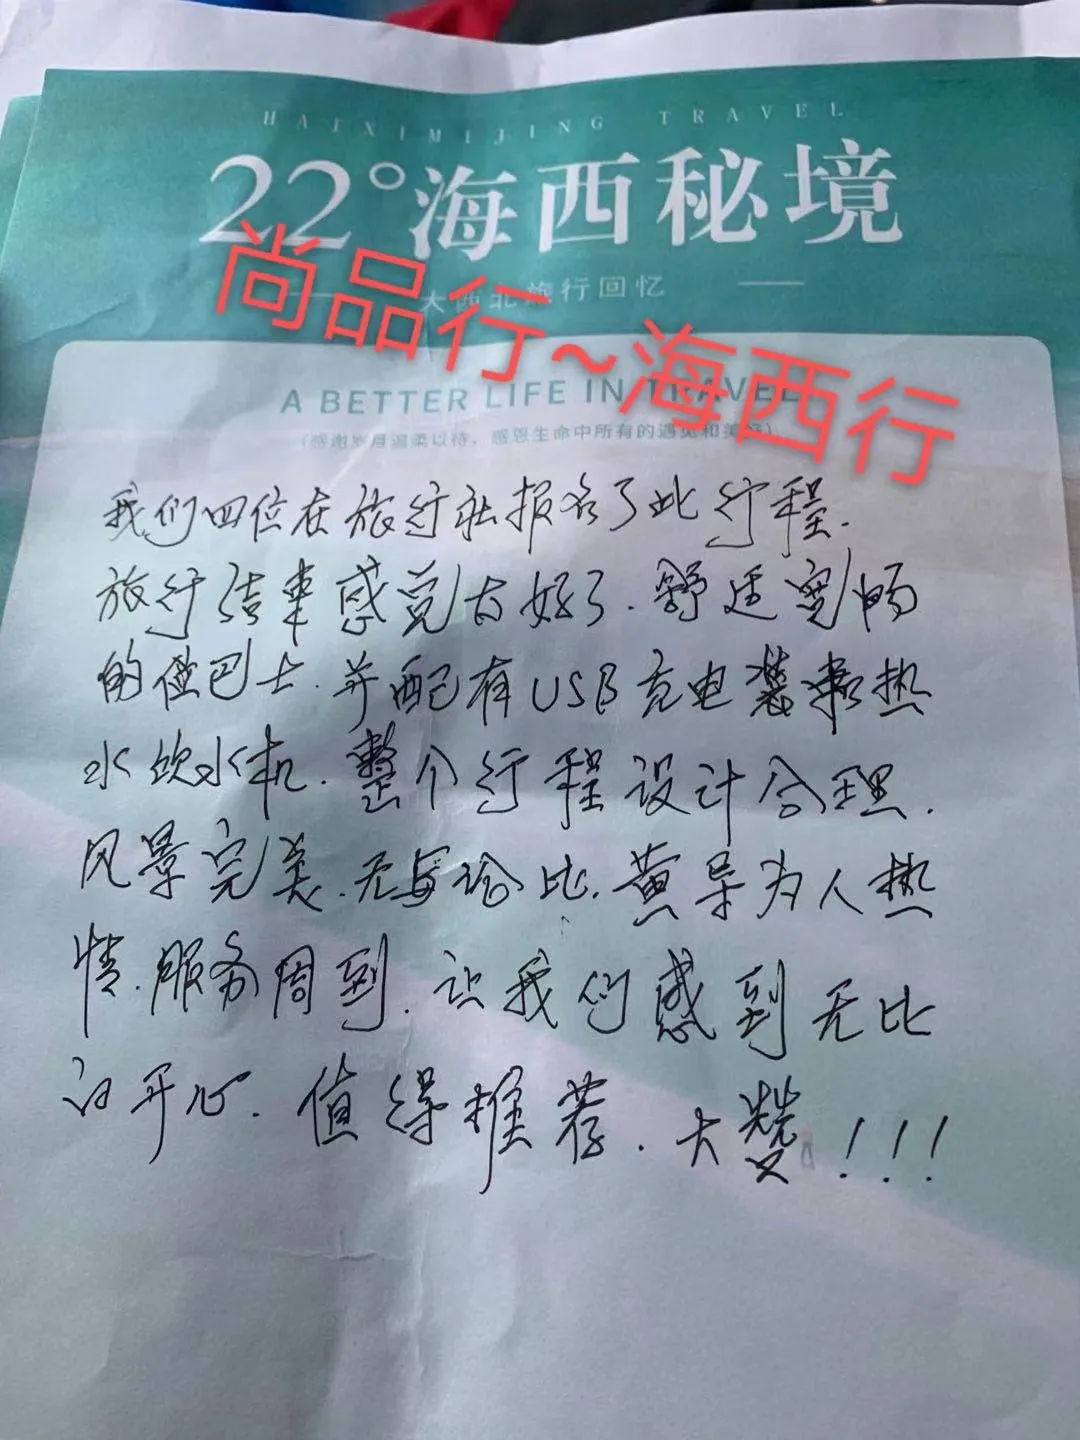 HAIXIMIJING TRAVEL
22°海西秘境
大西北旅行回忆
尚品行~海西行
A BETTER LIFE IN TRAVEL
(感谢岁月温柔以待，感恩生命中所有的遇见和美好)
我们四位在旅行社报名了此行程.
旅行结束感觉太好了.舒适宽畅
的大巴士.并配有USB充电装热
水饮水机.整个行程设计合理.
风景完美.无与伦比.黄导为人热
情.服务周到.让我们感到无比
的开心.值得推荐.大赞!!!